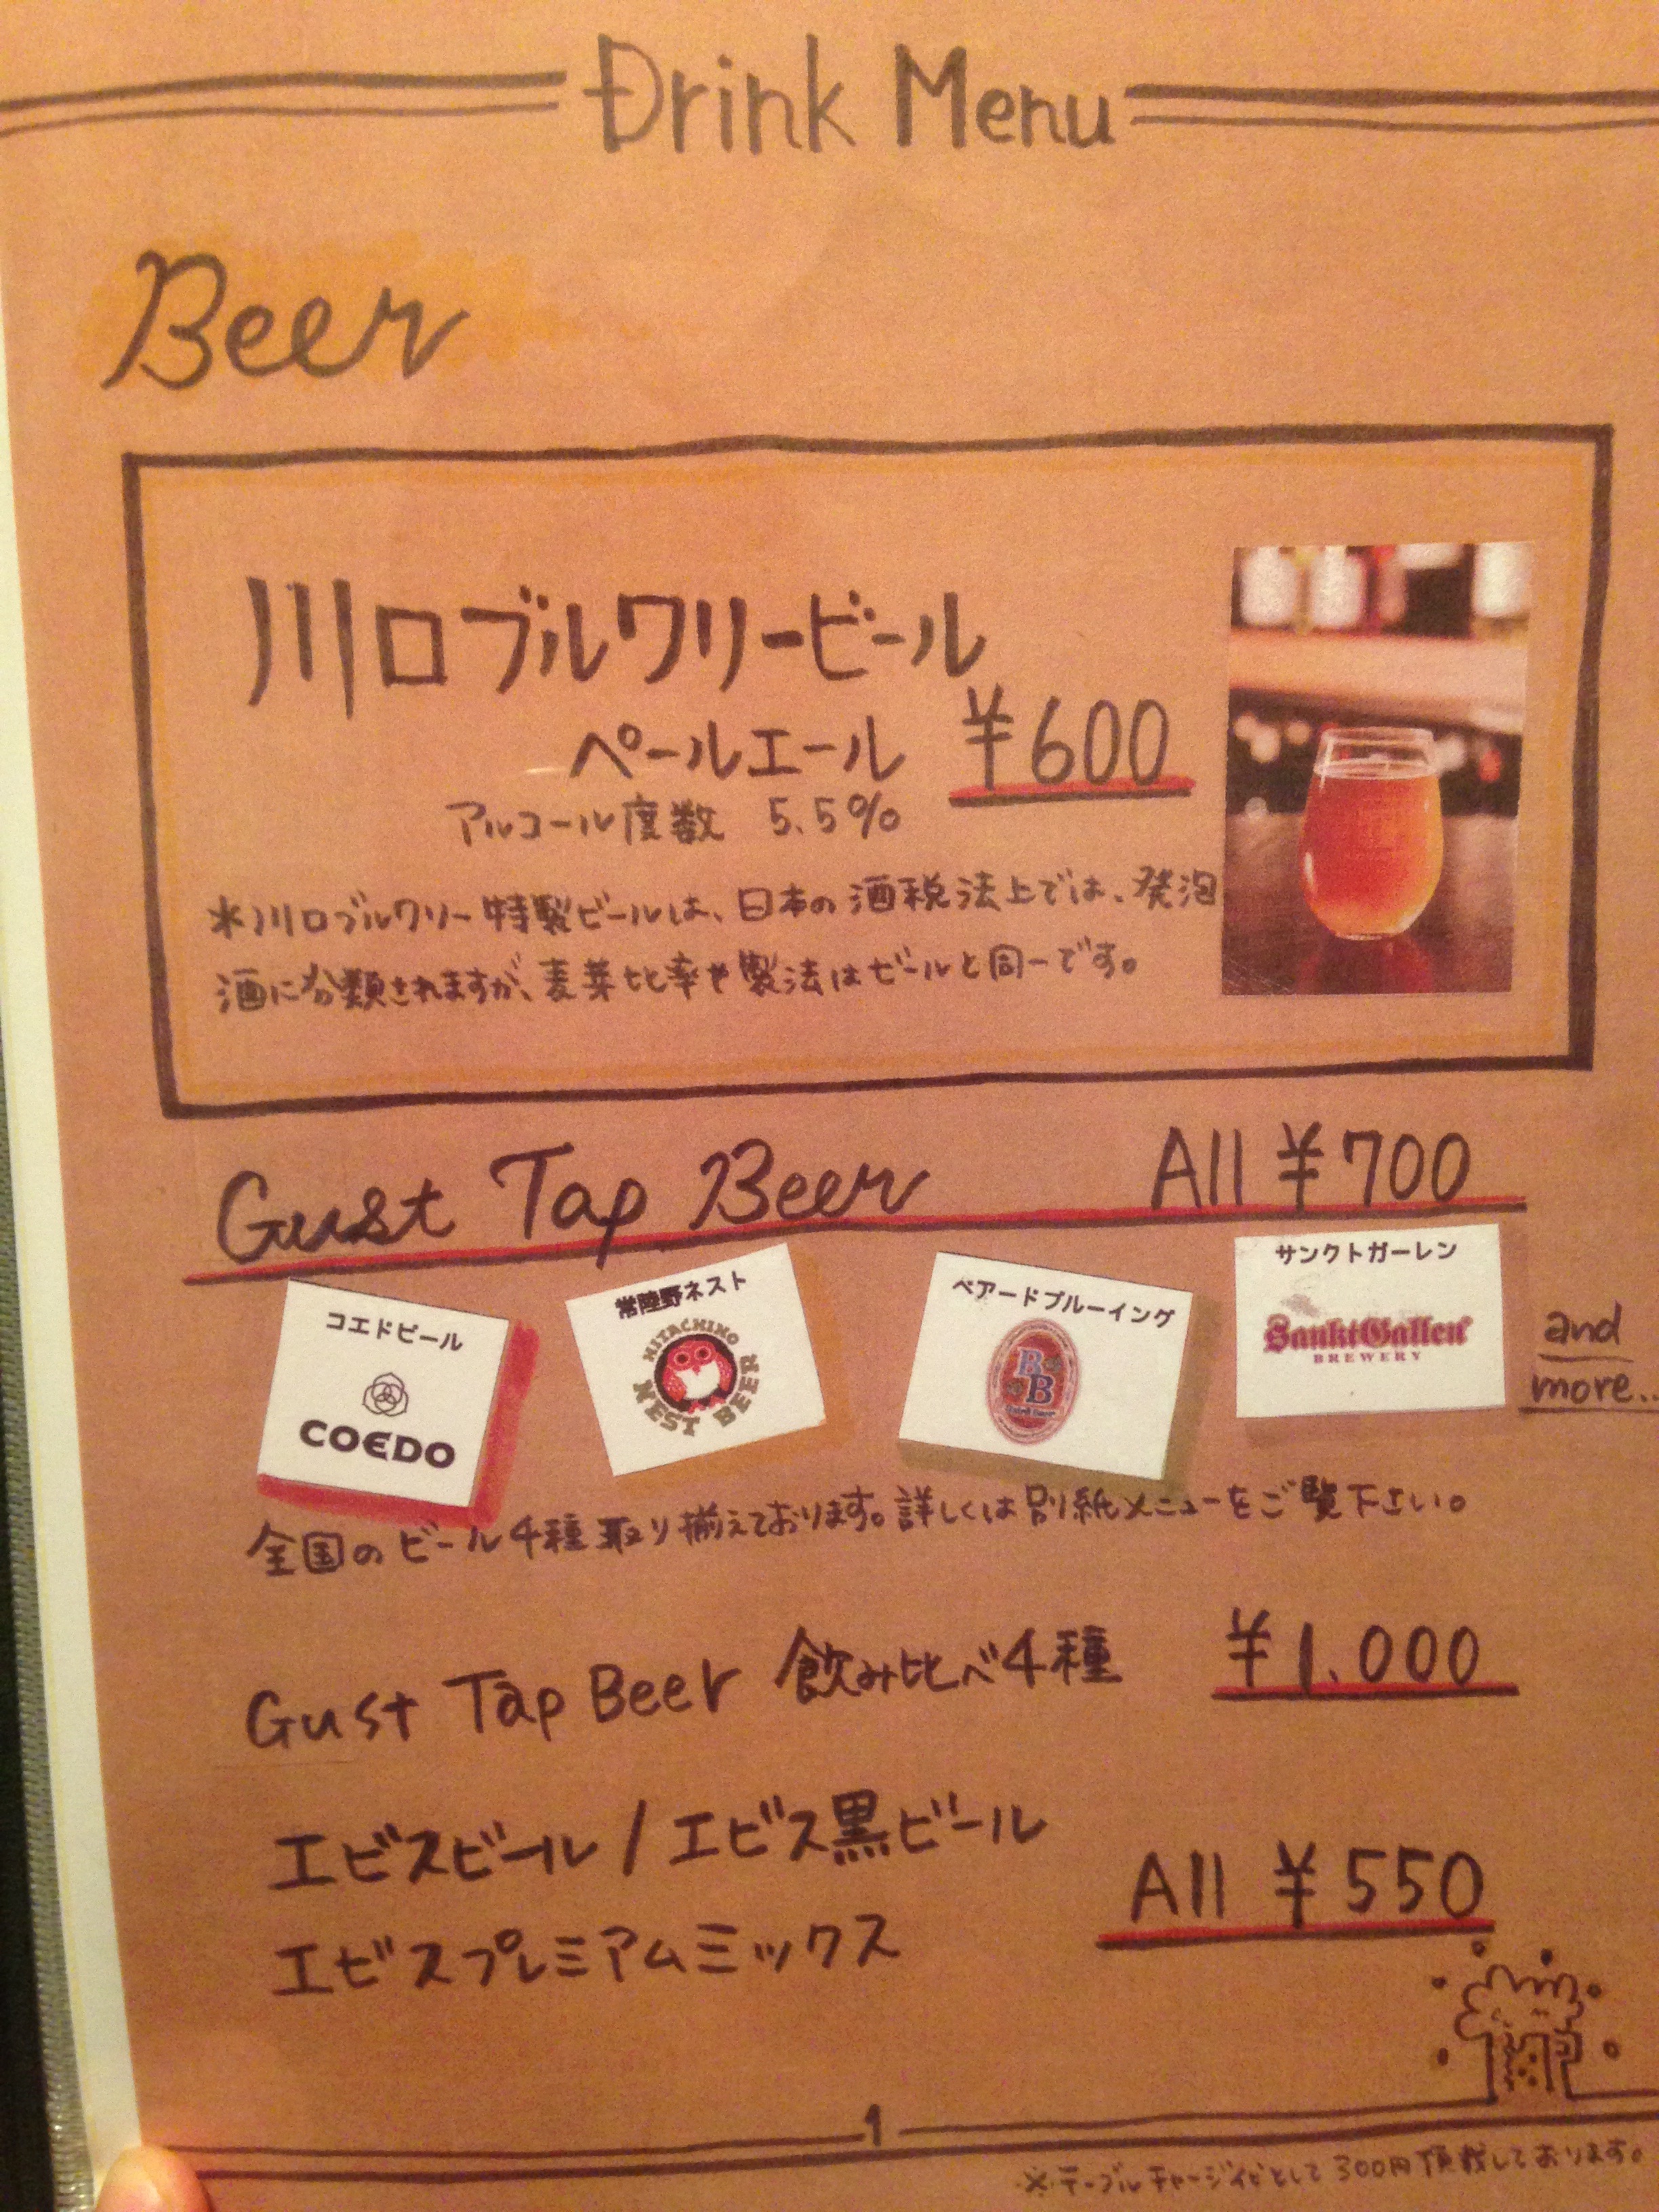 Drink Menu
Beer
川口ブルワリービール
ペールエール ¥600
アルコール度数 5.5%
*川口ブルワリー特製ビールは、日本の酒税法上では、発泡
酒に分類されますが、麦芽比率や製法はビールと同一です。
Gust Tap Beer All ¥700
コエドビール
COEDO
常陸野ネスト
HITACHINO
NEST BEER
ベアードブルーイング
BB
サンクトガーレン
Sankt Gallen
BREWERY
and
more..
全国のビール4種取り揃えております。詳しくは別紙メニューをご覧下さい。
Gust Tap Beer 飲み比べ4種 ¥1.000
エビスビール / エビス黒ビール
エビスプレミアムミックス
All ¥550
1
※テーブルチャージ代として300円頂戴しております。